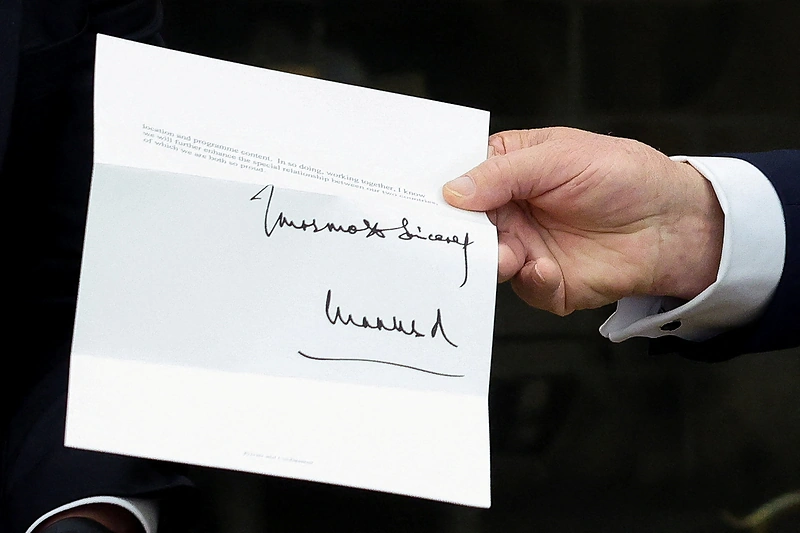 location and programme content. In so doing, working together, I know
we will further enhance the special relationship between our two countries,
of which we are both so proud.
Yours most sincerely
Private and Confidential